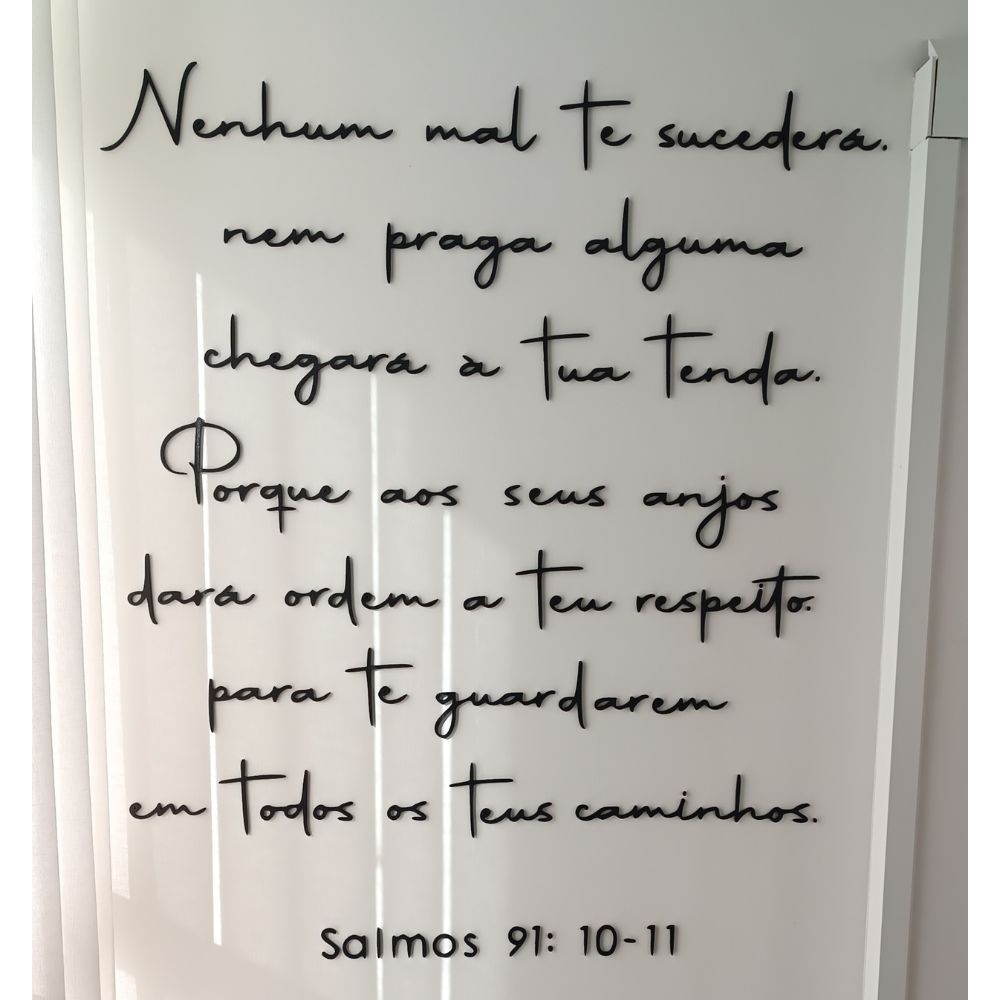 Nenhum mal te sucederá.
nem praga alguma
chegará à tua tenda.
Porque aos seus anjos
dará ordem a teu respeito.
para te guardarem
em todos os teus caminhos.
Salmos 91: 10-11